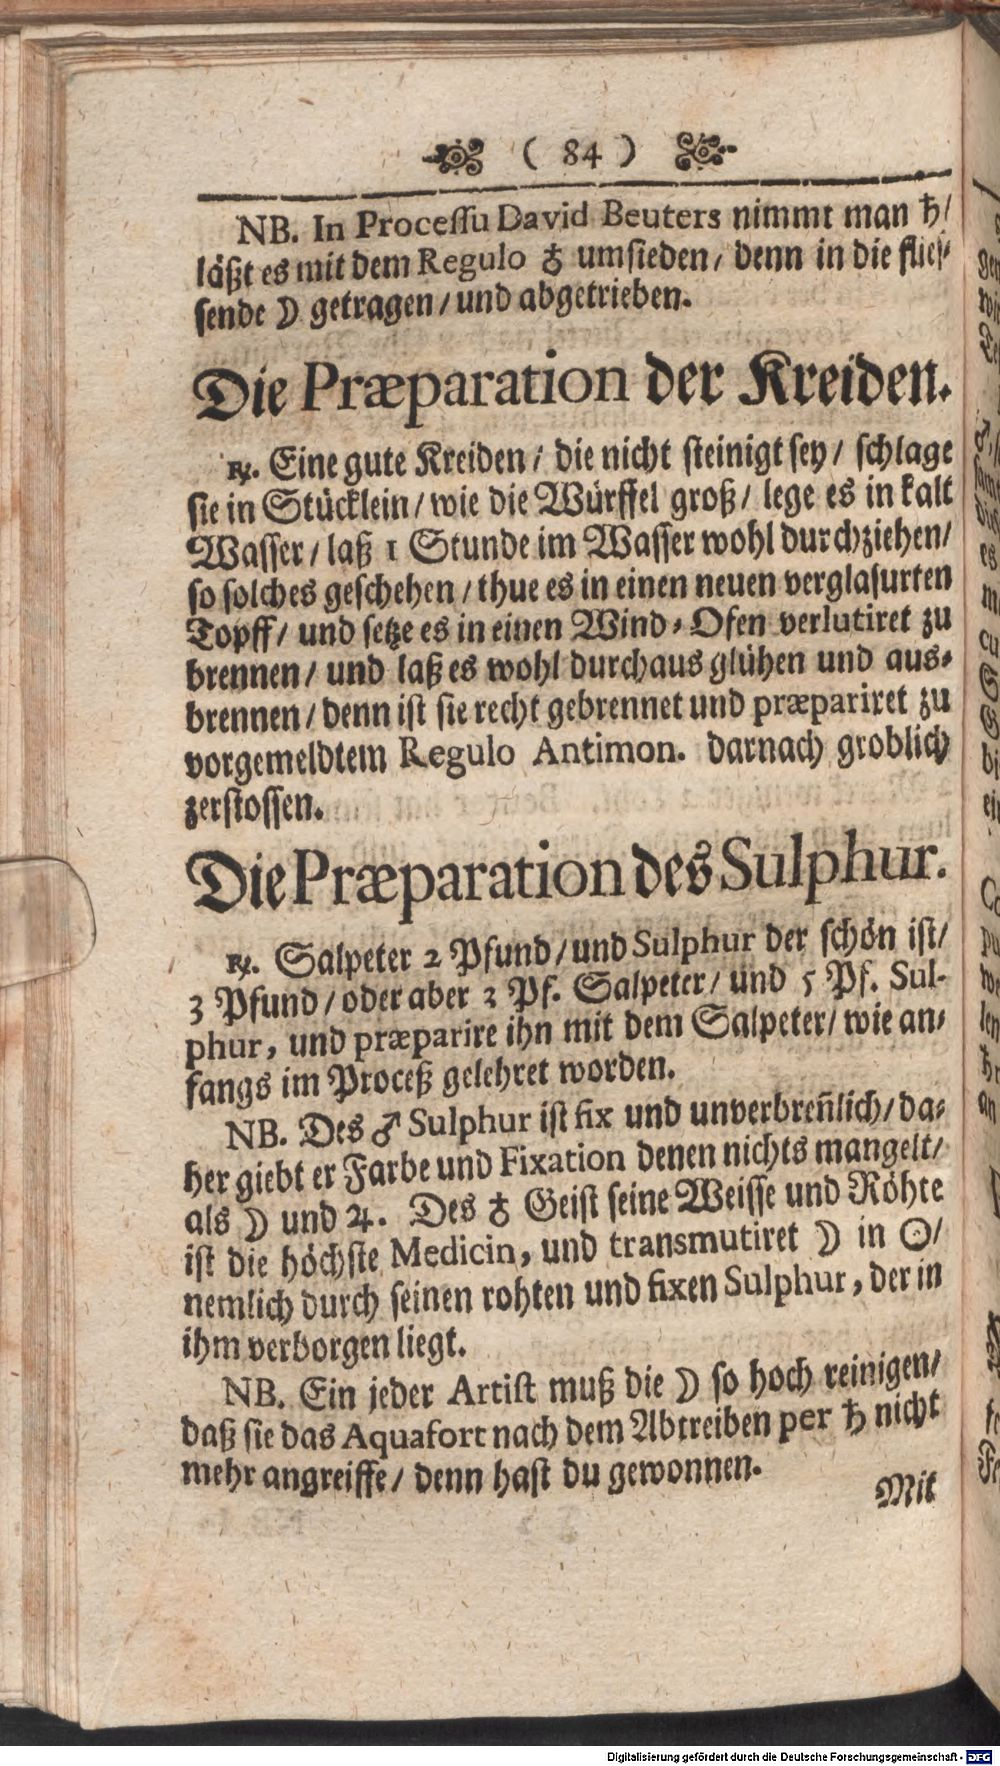 ( 84 )
NB. In Processu David Beuters nimmt man ♄/
läßt es mit dem Regulo ♁ umsieden/ denn in die flies-
sende ☽ getragen/ und abgetrieben.
Die Præparation der Kreiden.
℞. Eine gute Kreiden/ die nicht steinigt sey/ schlage
sie in Stücklein/ wie die Würffel groß/ lege es in kalt
Wasser/ laß 1 Stunde im Wasser wohl durchziehen/
so solches geschehen/ thue es in einen neuen verglasurten
Topff/ und setze es in einen Wind-Ofen verlutiret zu
brennen/ und laß es wohl durchaus glühen und aus-
brennen/ denn ist sie recht gebrennet und præpariret zu
vorgemeldtem Regulo Antimon. darnach groblich
zerstossen.
Die Præparation des Sulphur.
℞. Salpeter 2 Pfund/ und Sulphur der schön ist/
3 Pfund/ oder aber 3 Pf. Salpeter/ und 5 Pf. Sul-
phur, und præparire ihn mit dem Salpeter/ wie an-
fangs im Proceß gelehret worden.
NB. Des ♂ Sulphur ist fix und unverbreñlich/ da-
her giebt er Farbe und Fixation denen nichts mangelt/
als ☽ und ♃. Des ♁ Geist seine Weisse und Röhte
ist die höchste Medicin, und transmutiret ☽ in ☉/
nemlich durch seinen rohten und fixen Sulphur, der in
ihm verborgen liegt.
NB. Ein jeder Artist muß die ☽ so hoch reinigen/
daß sie das Aquafort nach dem Abtreiben per ♄ nicht
mehr angreiffe/ denn hast du gewonnen.
Mit
Digitalisierung gefördert durch die Deutsche Forschungsgemeinschaft - DFG